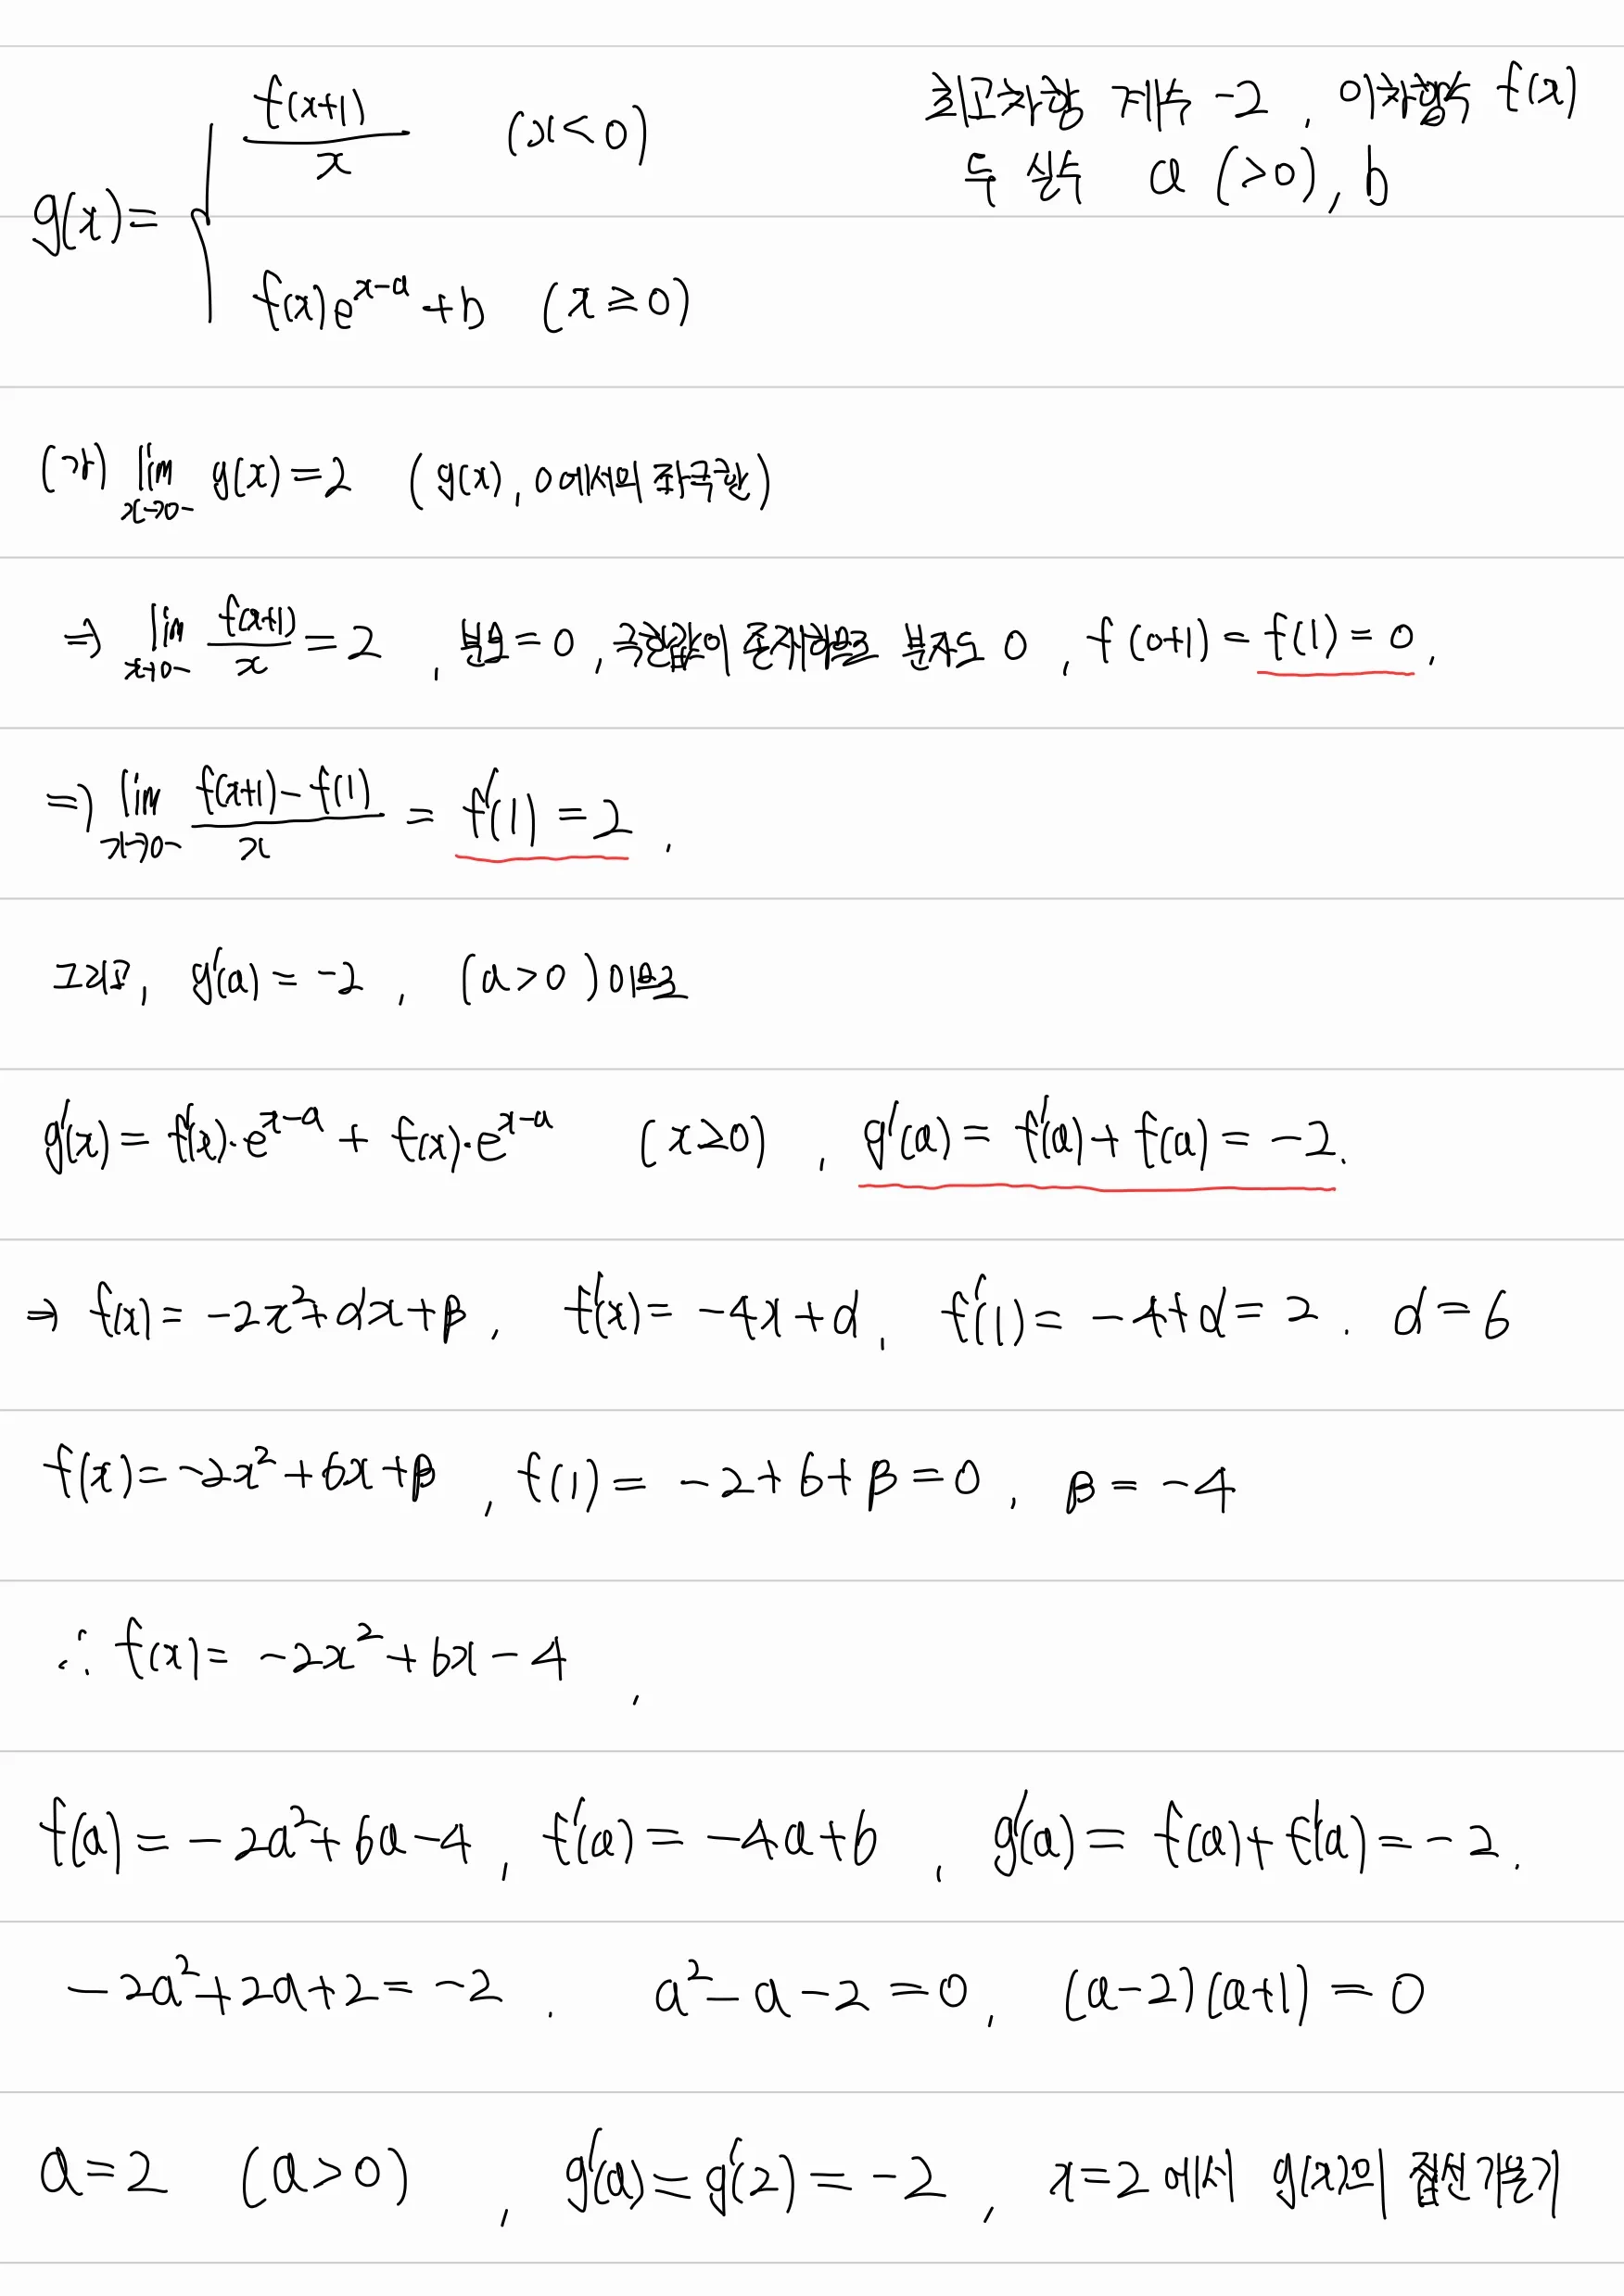 g(x)= { f(x+1)/x (x<0)
f(x)e^{x-a}+b (x≥0)
최고차항 계수 -2, 이차함수 f(x)
두 실수 a (>0), b
(가) lim_{x→0-} g(x)=2 (g(x), 0에서의 좌극한)
⇒ lim_{x→0-} f(x+1)/x = 2, 분모=0, 극한값이 존재하므로 분자도 0, f(0+1)=f(1)=0.
⇒ lim_{x→0-} (f(x+1)-f(1))/x = f'(1)=2,
그리고, g'(a)=-2, (a>0)이므로
g'(x)=f'(x)·e^{x-a}+f(x)·e^{x-a} (x≥0), g'(a)=f'(a)+f(a)=-2.
⇒ f(x)=-2x²+αx+β, f'(x)=-4x+α, f'(1)=-4+α=2. α=6
f(x)=-2x²+6x+β, f(1)=-2+6+β=0, β=-4
∴ f(x)=-2x²+6x-4,
f(a)=-2a²+6a-4, f'(a)=-4a+6, g'(a)=f(a)+f'(a)=-2.
-2a²+2a+2=-2. a²-a-2=0, (a-2)(a+1)=0
a=2 (a>0), g'(a)=g'(2)=-2, x=2에서 g(x)의 접선 기울기